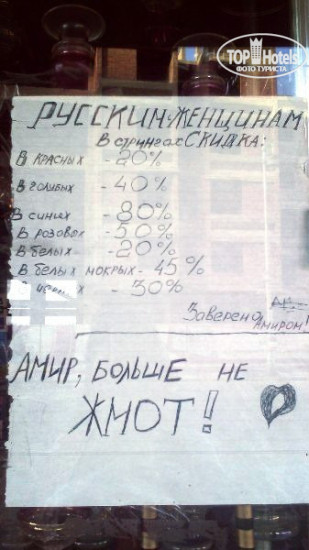 TOP Hotels
ФОТО ТУРИСТА
РУССКИМ ЖЕНЩИНАМ
В стрингах СКИДКА:
В КРАСНЫХ - 20%
В ГОЛУБЫХ - 40%
В СИНИХ - 80%
В РОЗОВЫХ - 50%
В БЕЛЫХ - 20%
В БЕЛЫХ МОКРЫХ - 45%
В - 30%
Заверено
Амиром!
АМИР, БОЛЬШЕ НЕ
ЖМОТ!